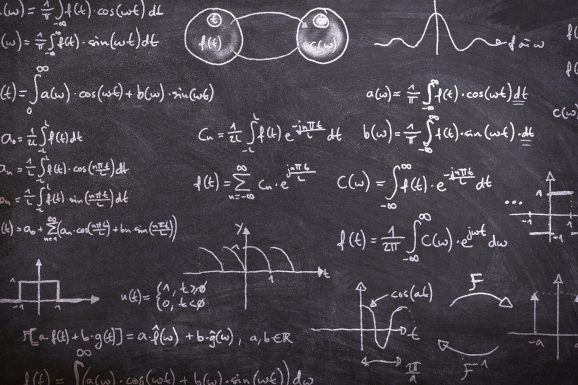 a(ω) = 1/π ∫ f(t) · cos(ωt) dt
b(ω) = 1/π ∫_{-∞}^{∞} f(t) · sin(ωt) dt
t
f(t)
ω
C(ω)
f(t) = ∫_0^∞ a(ω) · cos(ωt) + b(ω) · sin(ωt)
a(ω) = 1/π ∫_{-∞}^{∞} f(t) · cos(ωt) dt
a₀ = 1/2L ∫ f(t) dt
Cₙ = 1/2L ∫_{-L}^{L} f(t) e^{-jnπt/L} dt
b(ω) = 1/π ∫_{-∞}^{∞} f(t) · sin(ωt) · dt
aₙ = 1/L ∫ f(t) · cos(nπt/L) dt
f(t) = Σ_{n=-∞}^{∞} Cₙ · e^{jnπt/L}
C(ω) = ∫_{-∞}^{∞} f(t) · e^{-jnπt/L} dt
= 1/L ∫ f(t) · sin(nπt/L) dt
...
1
f(t) = a₀ + Σ_{n=1}^{∞} (aₙ · cos(nπt/L) + bₙ sin(nπt/L))
f(t) = 1/2π ∫_{-∞}^{∞} C(ω) · e^{jωt} dω
y
1
t
1
u(t) = {1, t≥0
{0, t<0
cos(at)
t
π/a
F
F⁻¹
-a
F[a·f(t) + b·g(t)] = a·f̂(ω) + b·ĝ(ω), a,b∈ℝ
f(t) = ∫^∞ (a(ω) · cos(ωt) + b(ω) · sin(ωt)) dω